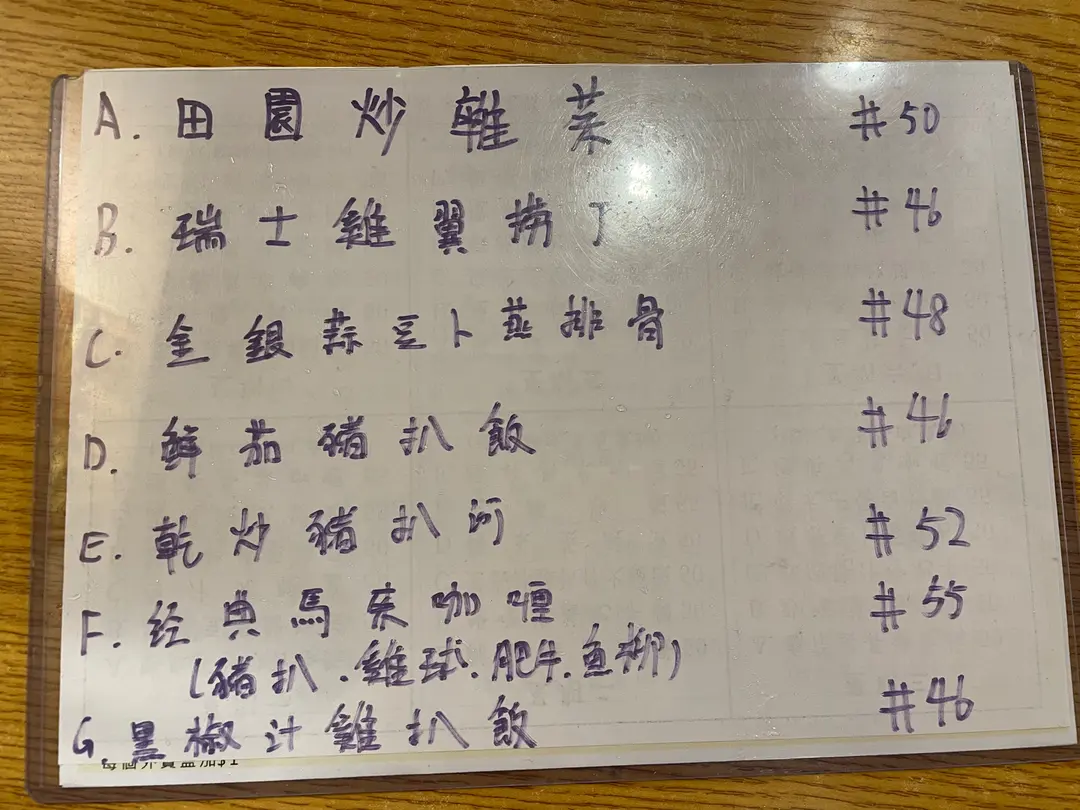 A. 田園炒雜菜 #50
B. 瑞士雞翼撈丁 #46
C. 金銀蒜豆卜蒸排骨 #48
D. 鲜茄豬扒飯 #46
E. 乾炒豬扒河 #52
F. 经典馬来咖喱 #55
(豬扒.雞球.肥牛.魚柳)
G. 黑椒汁雞扒飯 #46